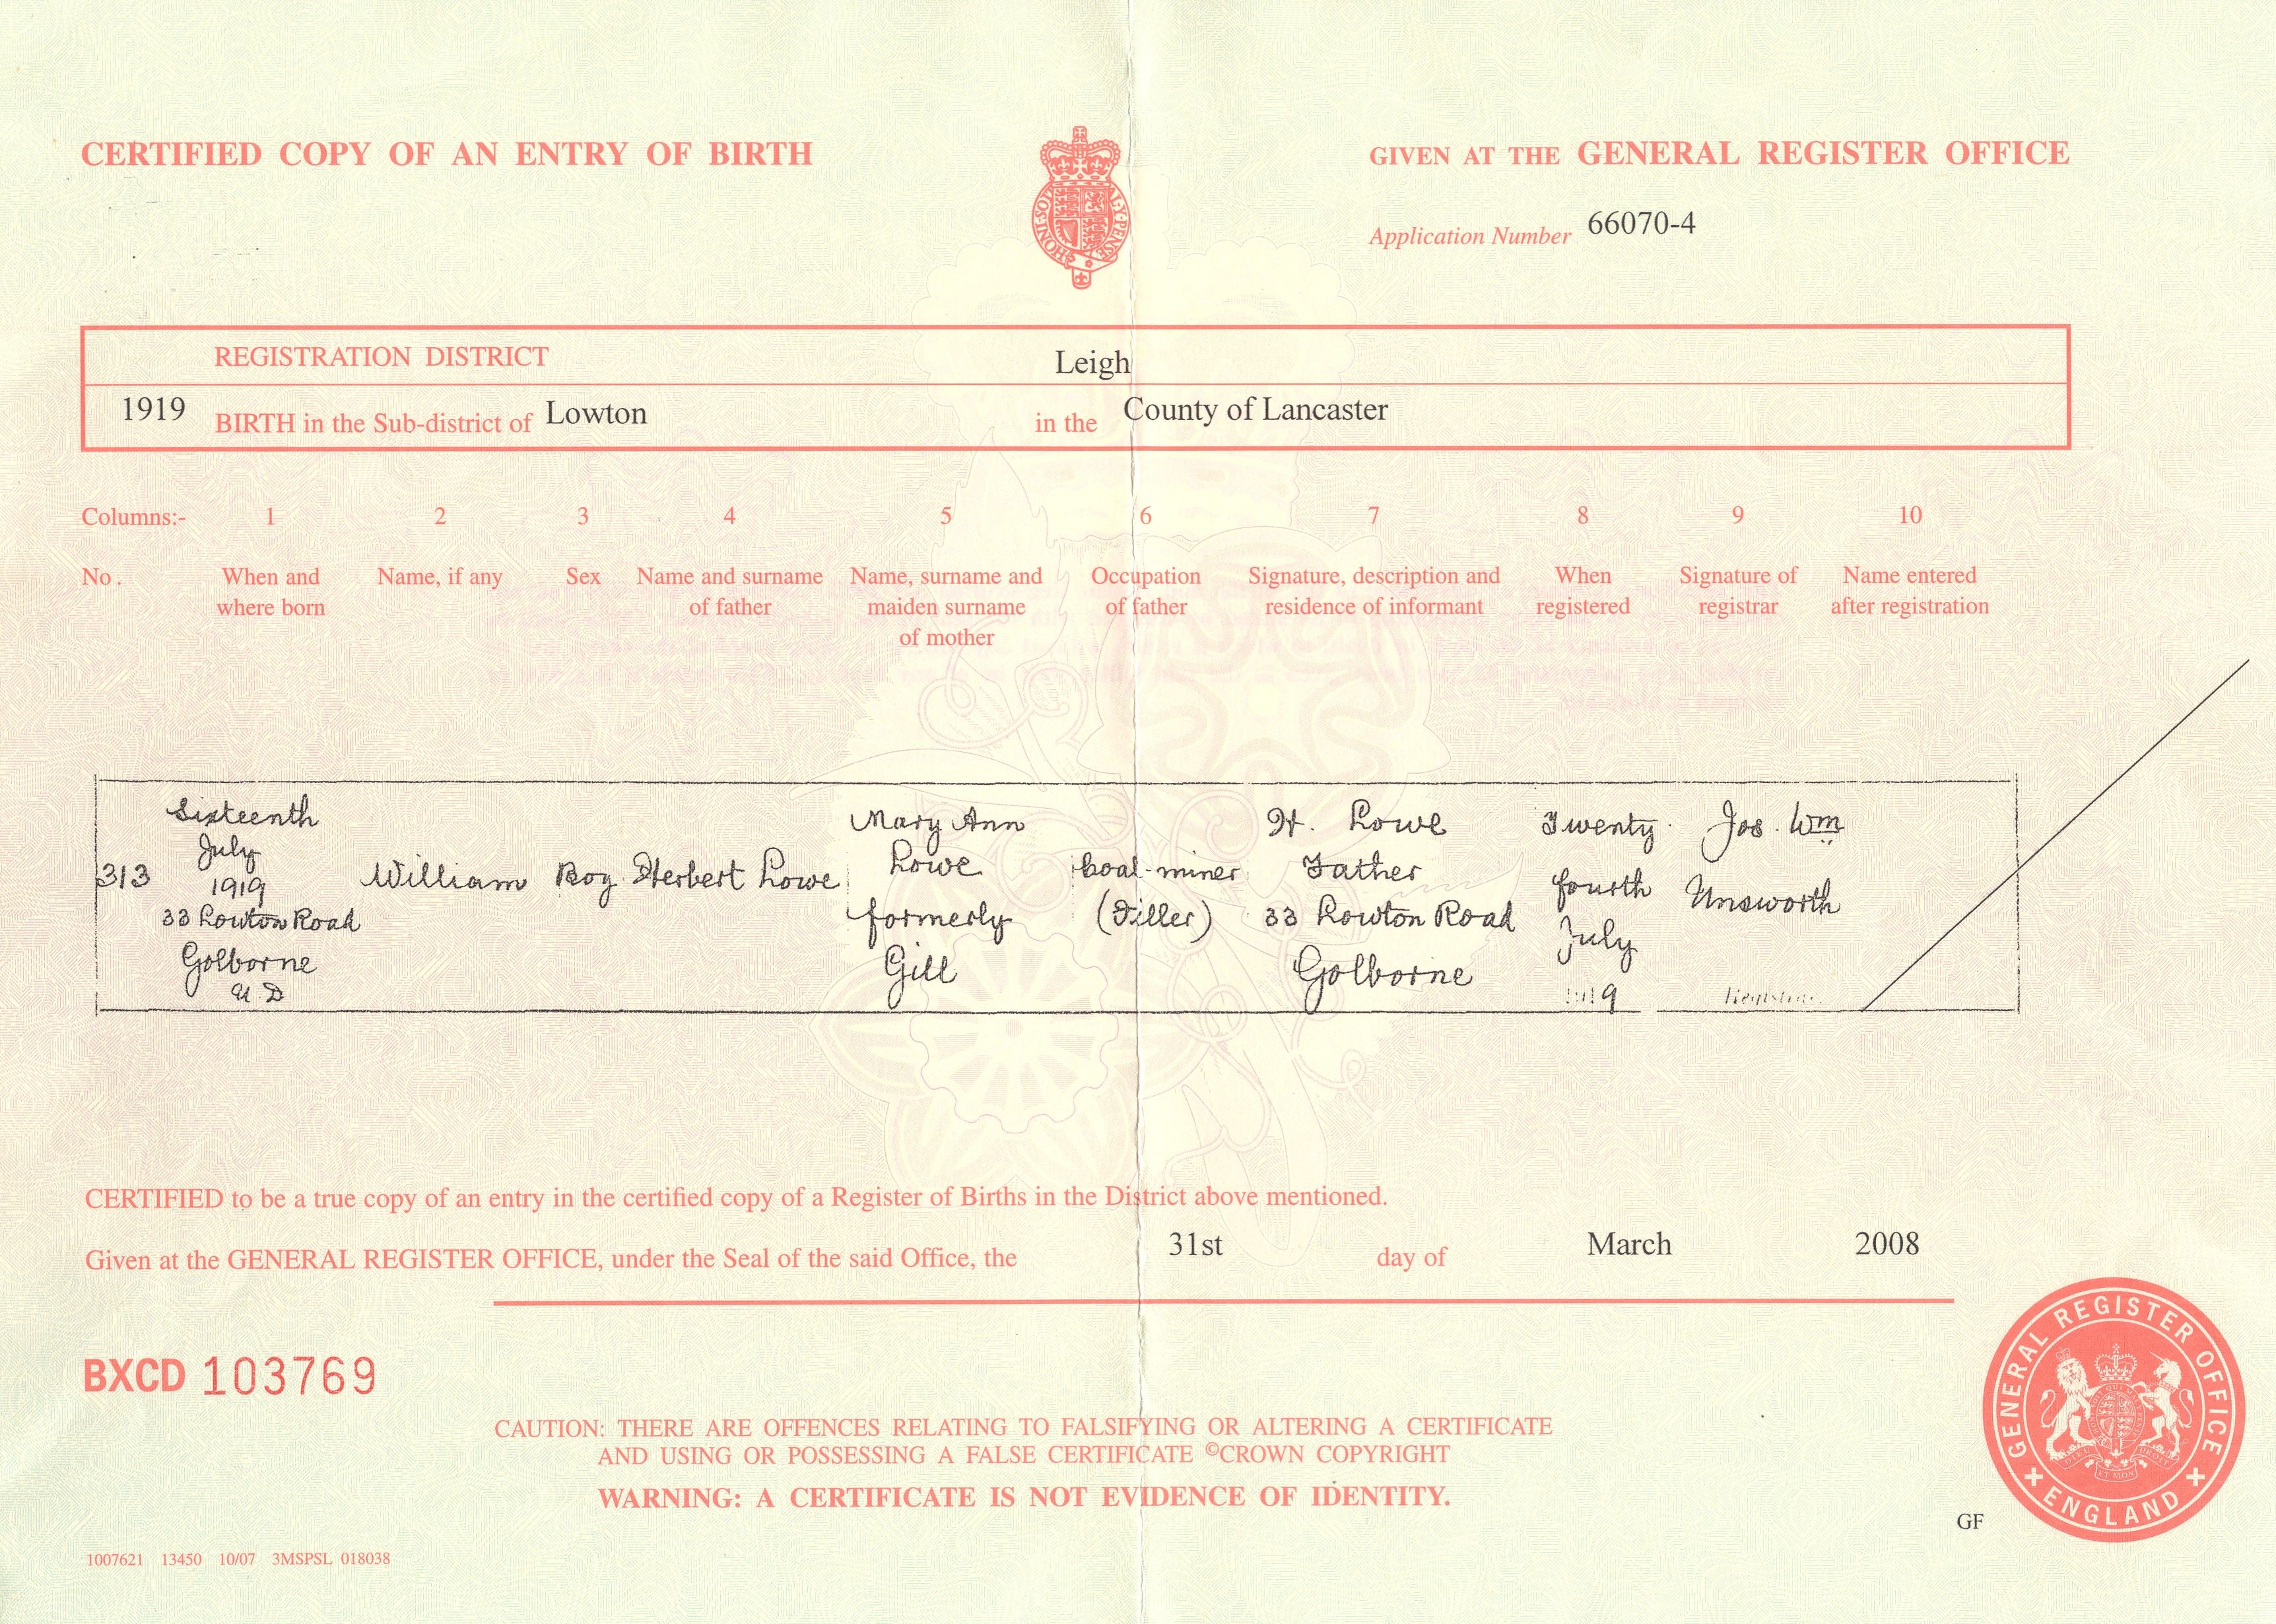 CERTIFIED COPY OF AN ENTRY OF BIRTH
GIVEN AT THE GENERAL REGISTER OFFICE
HONI·SOIT AL·Y·PENSE
Application Number 66070-4
REGISTRATION DISTRICT Leigh
1919 BIRTH in the Sub-district of Lowton in the County of Lancaster
Columns:- 1 2 3 4 5 6 7 8 9 10
No. When and Name, if any Sex Name and surname Name, surname and Occupation Signature, description and When Signature of Name entered
where born of father maiden surname of father residence of informant registered registrar after registration
of mother
313
Sixteenth
July
1919
33 Lowton Road
Golborne
U.D
William
Boy
Herbert Lowe
Mary Ann
Lowe
formerly
Gill
Coal-miner
(Filler)
H. Lowe
Father
33 Lowton Road
Golborne
Twenty
fourth
July
1919
Jos. Wm
Unsworth
Registrar
CERTIFIED to be a true copy of an entry in the certified copy of a Register of Births in the District above mentioned.
Given at the GENERAL REGISTER OFFICE, under the Seal of the said Office, the 31st day of March 2008
BXCD 103769
CAUTION: THERE ARE OFFENCES RELATING TO FALSIFYING OR ALTERING A CERTIFICATE
AND USING OR POSSESSING A FALSE CERTIFICATE ©CROWN COPYRIGHT
WARNING: A CERTIFICATE IS NOT EVIDENCE OF IDENTITY.
GENERAL REGISTER OFFICE
ENGLAND
GF
1007621 13450 10/07 3MSPSL 018038